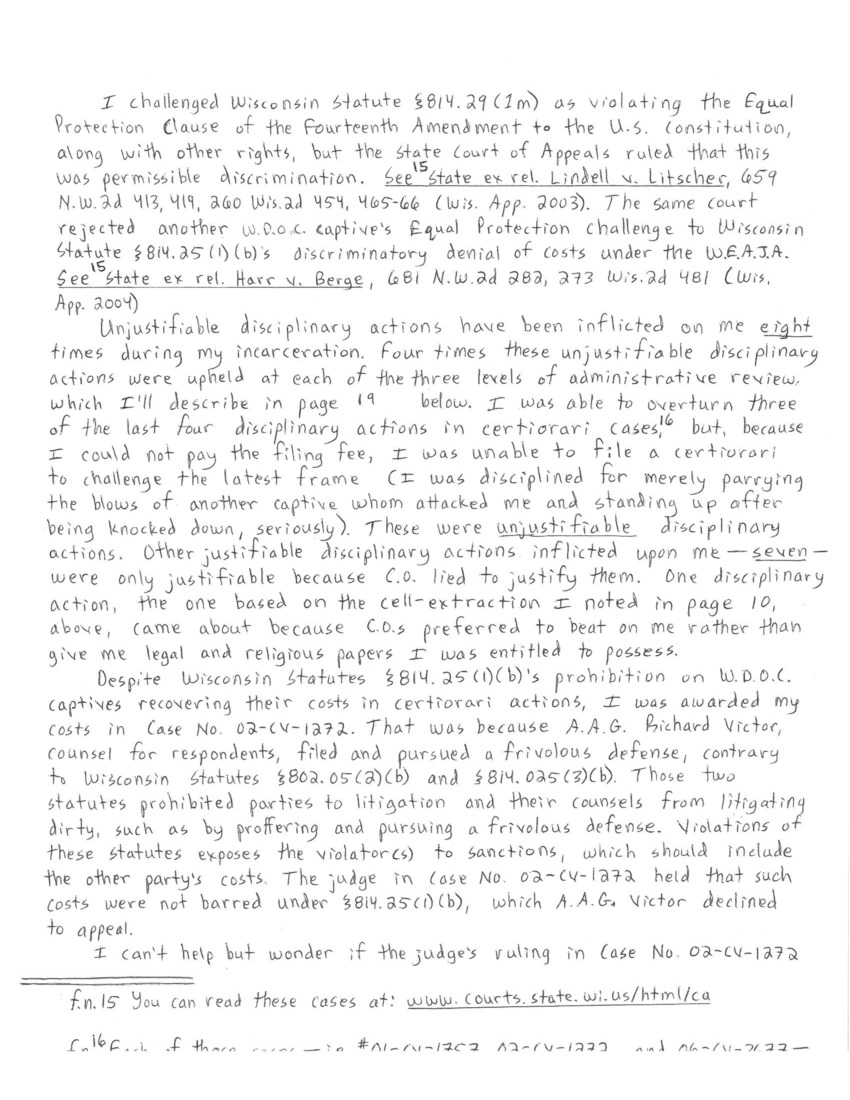 I challenged Wisconsin Statute §814.29(1m) as violating the Equal
Protection Clause of the Fourteenth Amendment to the U.S. Constitution,
along with other rights, but the State Court of Appeals ruled that this
was permissible discrimination. See¹⁵ State ex rel. Lindell v. Litscher, 659
N.W.2d 413, 419, 260 Wis.2d 454, 465-66 (Wis. App. 2003). The same court
rejected another W.D.O.C. captive's Equal Protection challenge to Wisconsin
Statute §814.25(1)(b)'s discriminatory denial of costs under the W.E.A.J.A.
See¹⁵ State ex rel. Harr v. Berge, 681 N.W.2d 282, 273 Wis.2d 481 (Wis.
App. 2004)
Unjustifiable disciplinary actions have been inflicted on me eight
times during my incarceration. Four times these unjustifiable disciplinary
actions were upheld at each of the three levels of administrative review,
which I'll describe in page 19 below. I was able to overturn three
of the last four disciplinary actions in certiorari cases,¹⁶ but, because
I could not pay the filing fee, I was unable to file a certiorari
to challenge the latest frame (I was disciplined for merely parrying
the blows of another captive whom attacked me and standing up after
being knocked down, seriously). These were unjustifiable disciplinary
actions. Other justifiable disciplinary actions inflicted upon me — seven —
were only justifiable because C.O. lied to justify them. One disciplinary
action, the one based on the cell-extraction I noted in page 10,
above, came about because C.O.s preferred to beat on me rather than
give me legal and religious papers I was entitled to possess.
Despite Wisconsin Statutes §814.25(1)(b)'s prohibition on W.D.O.C.
captives recovering their costs in certiorari actions, I was awarded my
costs in Case No. 02-CV-1272. That was because A.A.G. Richard Victor,
counsel for respondents, filed and pursued a frivolous defense, contrary
to Wisconsin Statutes §802.05(2)(b) and §814.025(3)(b). Those two
statutes prohibited parties to litigation and their counsels from litigating
dirty, such as by proffering and pursuing a frivolous defense. Violations of
these statutes exposes the violator(s) to sanctions, which should include
the other party's costs. The judge in Case No. 02-CV-1272 held that such
costs were not barred under §814.25(1)(b), which A.A.G. Victor declined
to appeal.
I can't help but wonder if the judge's ruling in Case No. 02-CV-1272
f.n.15 You can read these cases at: www.courts.state.wi.us/html/ca